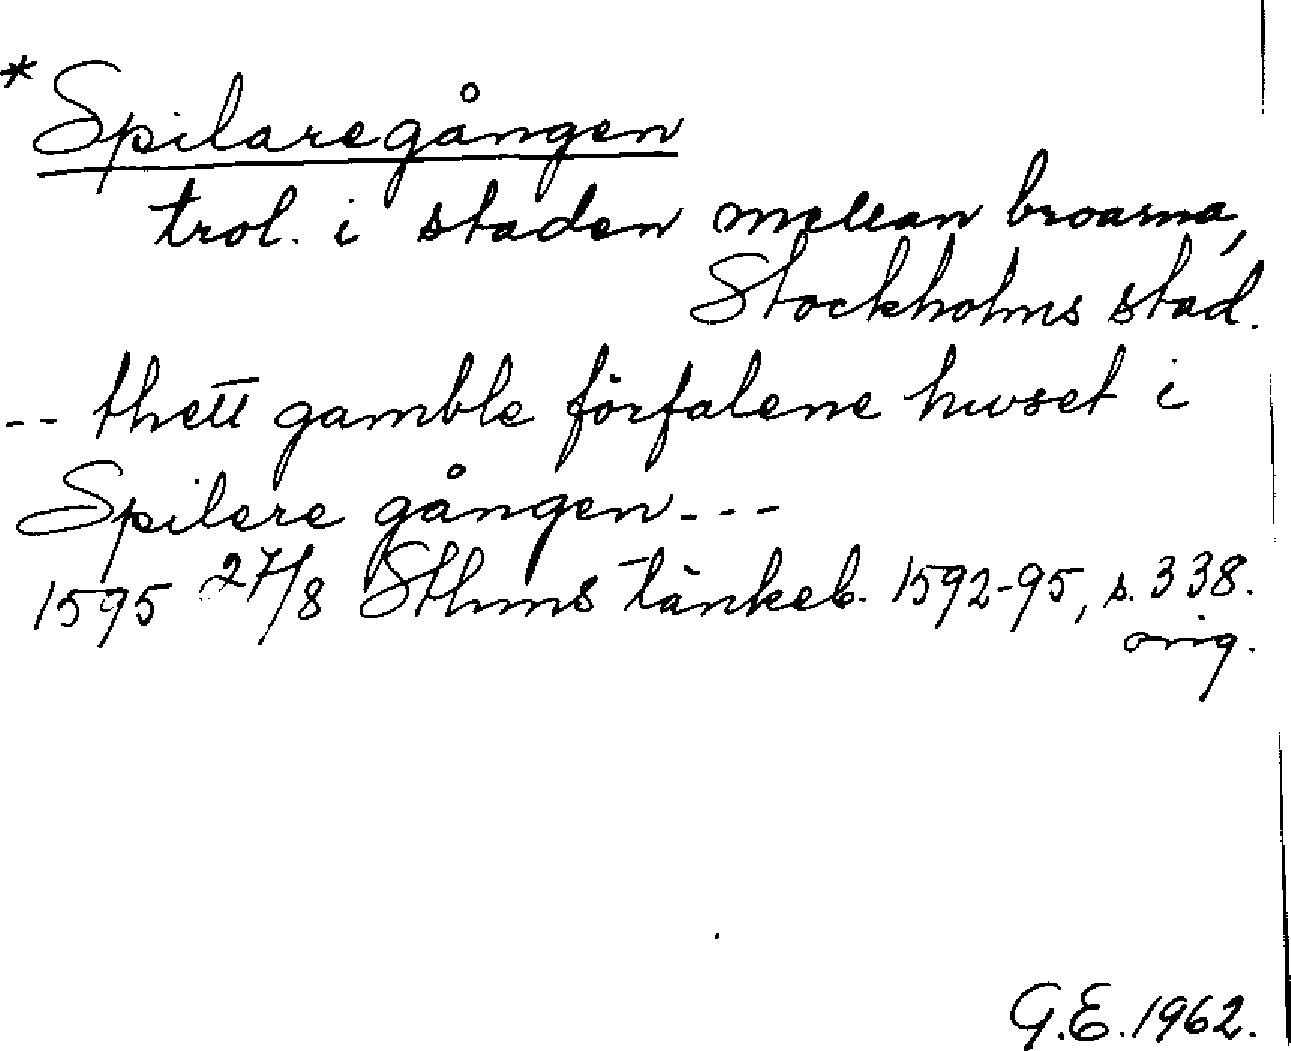 * Spilaregången
trol. i staden mellan broarna,
Stockholms stad.
-- thett gamble förfalene huset i
Spilere gången ---
1595 27/8 Sthms tänkeb. 1592-95, s. 338.
orig.
G.E. 1962.